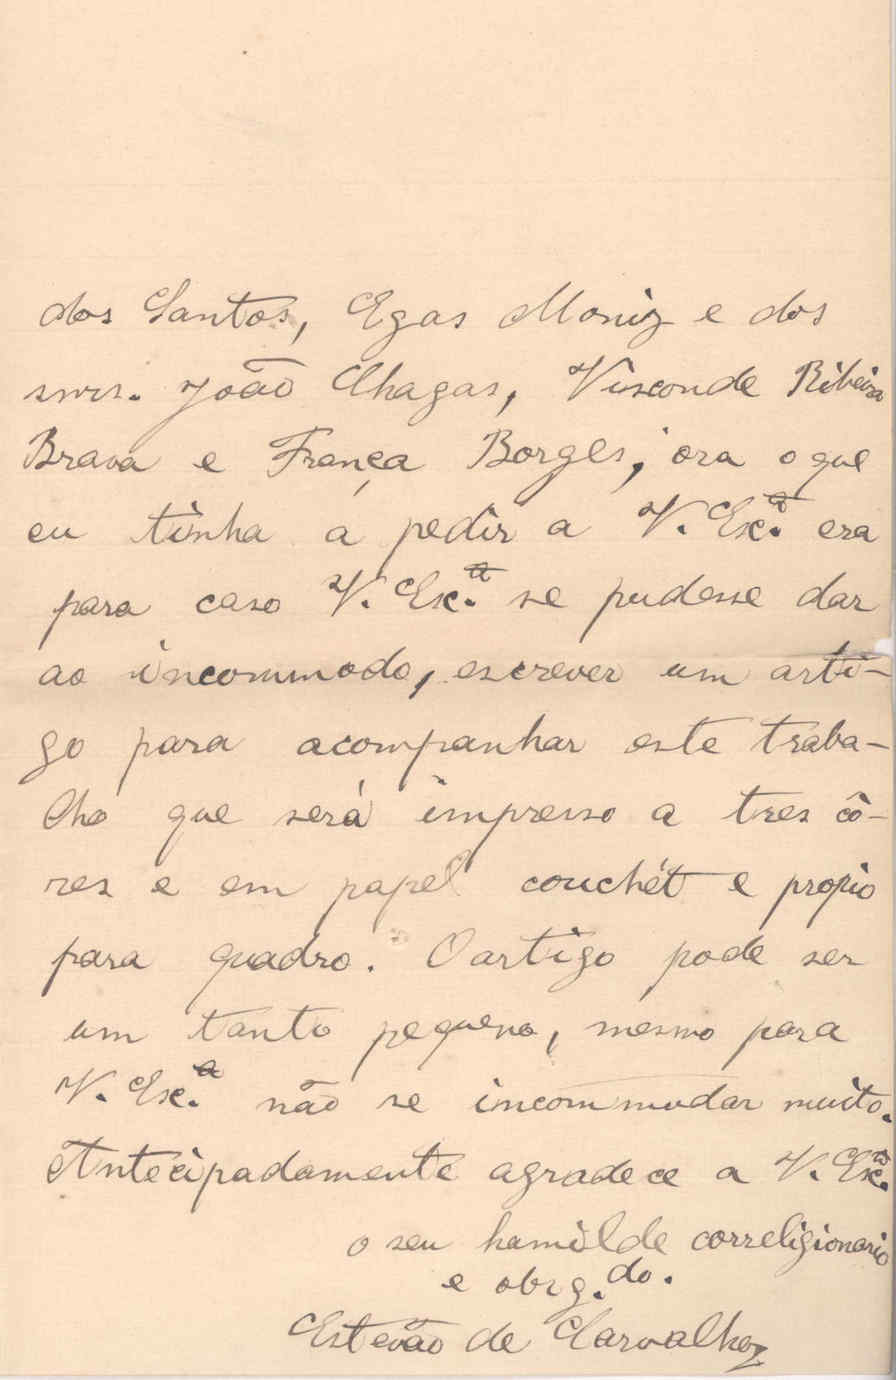 dos Santos, Egas Moniz e dos
snrs. João Chagas, Visconde Ribeira
Brava e França Borges; ora o que
eu tinha a pedir a V. Exc.ª era
para caso V. Exc.ª se pudesse dar
ao incommodo, escrever um arti-
go para acompanhar este traba-
lho que será impresso a tres cô-
res e em papel couchét e propio
para quadro. O artigo pode ser
um tanto pequeno, mesmo para
V. Exc.ª não se incommudar muito.
Antecipadamente agradece a V. Exc.ª
o seu hamilde correligionario
e obrg.do.
Estevão de Carvalho